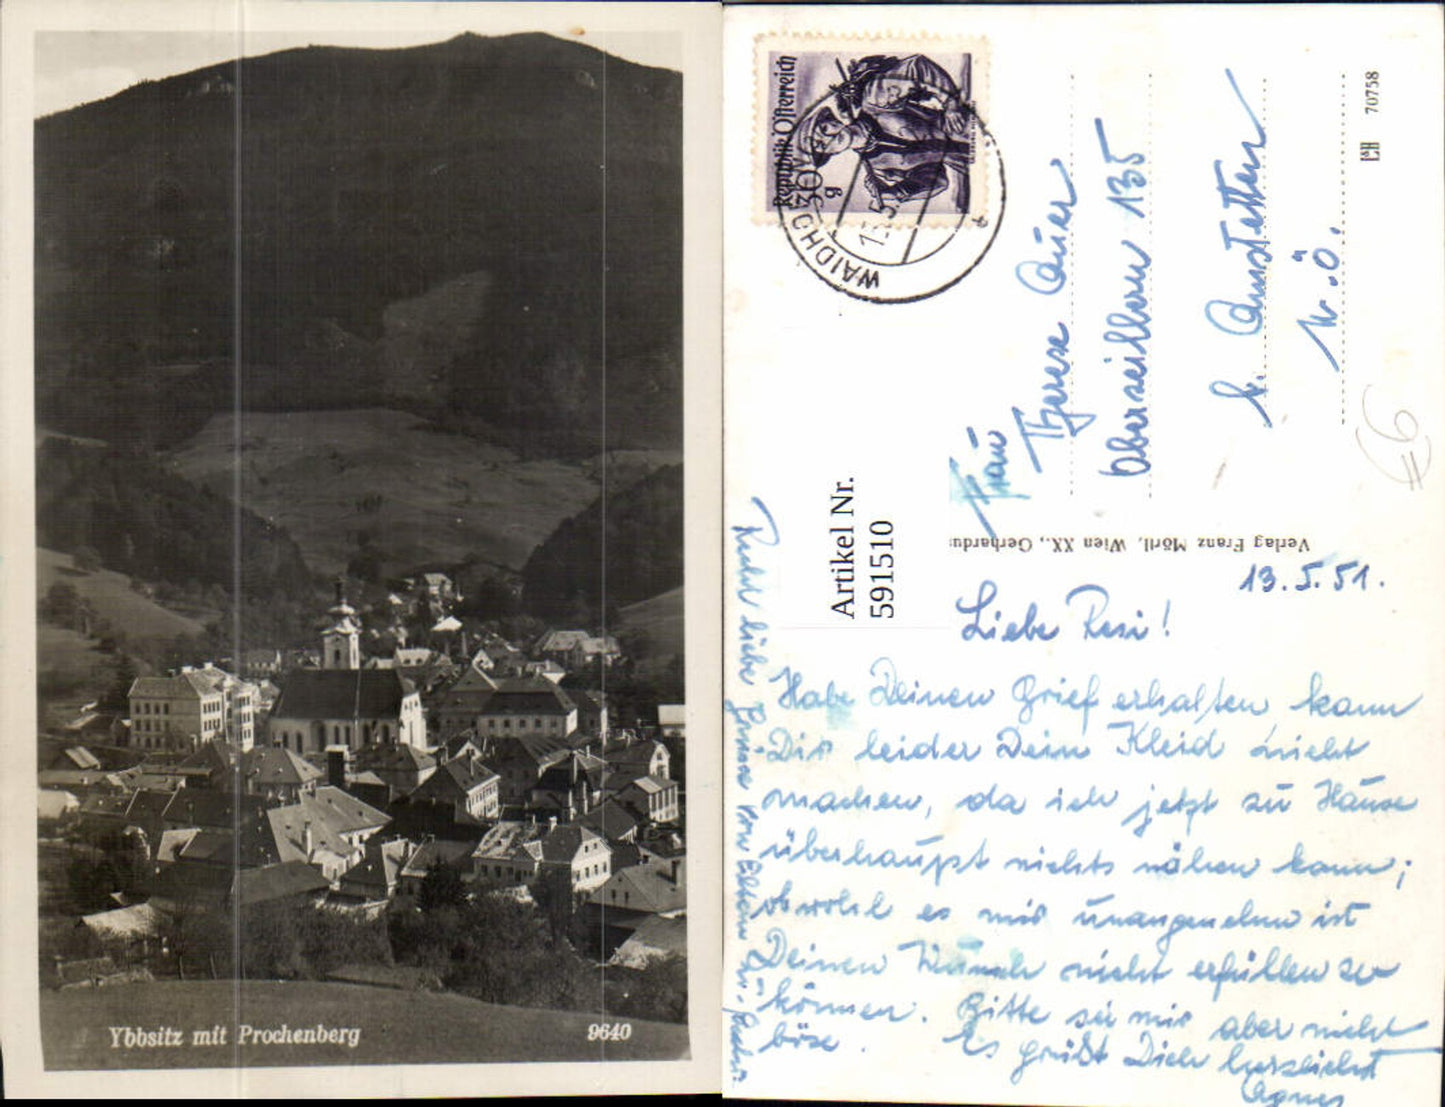 Ybbsitz mit Prochenberg
9640
Republik Österreich
30
g
WAIDHO
13.5.
Frau
Therese Auer
Oberseilbern 135
b. Amstetten
N.Ö.
70758
Verlag Franz Mörtl, Wien XX., Gerhardus
Artikel Nr.
591510
€6
13.5.51.
Liebe Resi!
Habe Deinen Brief erhalten, kann
Dir leider Dein Kleid nicht
machen, da ich jetzt zu Hause
überhaupt nichts nähen kann;
obwohl es mir unangenehm ist
Deinen Wunsch nicht erfüllen zu
können. Bitte sei mir aber nicht
böse. Es grüßt Dich herzlichst
Agnes
Recht liebe Grüße von Eltern u.